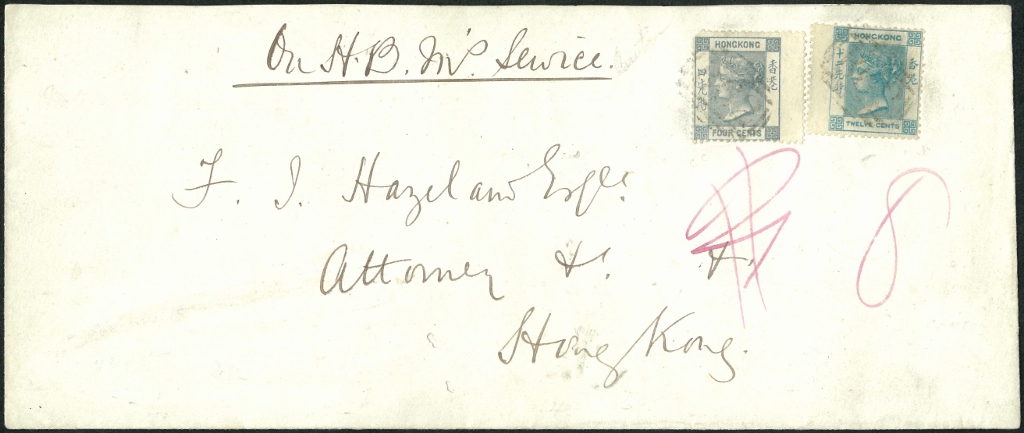 On H.B.M's Service.
HONGKONG
香港
四先時
FOUR CENTS
HONGKONG
香港
十二先時
TWELVE CENTS
F. I. Hazeland Esqre
Attorney &c. &c.
Hong Kong.
8